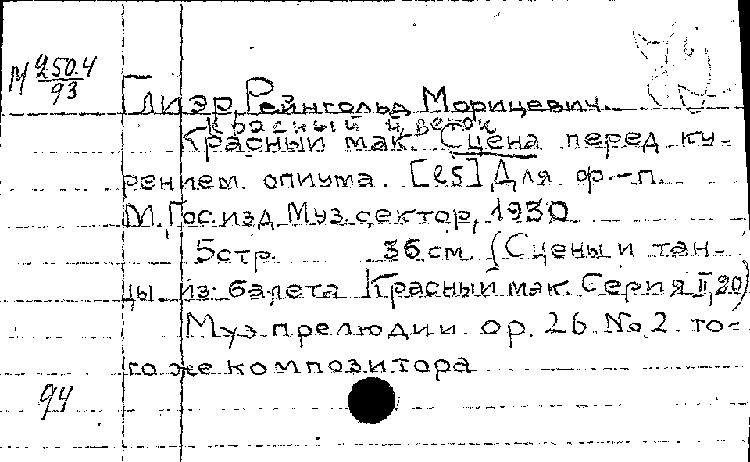 М 250.4
93
Глиэр, Рейнгольд Морицевич.
Красный цветок
Красный мак. Сцена перед ку-
рением опиума. [25] Для ф.-п.
М. Гос. изд. Муз. сектор, 1930
5 стр. 36 см. (Сцены и тан-
цы из балета Красный мак. Серия II, 20)
Муз. прелюдии op. 26. No. 2. то-
го же композитора
94